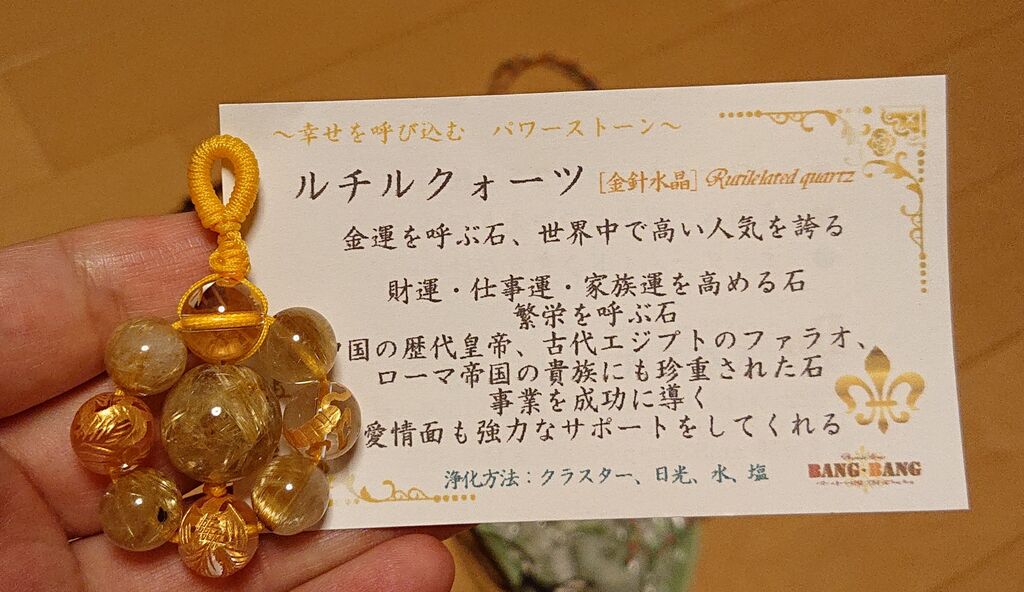 ～幸せを呼び込む パワーストーン～
ルチルクォーツ [金針水晶] Rutilelated quartz
金運を呼ぶ石、世界中で高い人気を誇る
財運・仕事運・家族運を高める石
繁栄を呼ぶ石
国の歴代皇帝、古代エジプトのファラオ、
ローマ帝国の貴族にも珍重された石
事業を成功に導く
愛情面も強力なサポートをしてくれる
浄化方法：クラスター、日光、水、塩
BANG・BANG